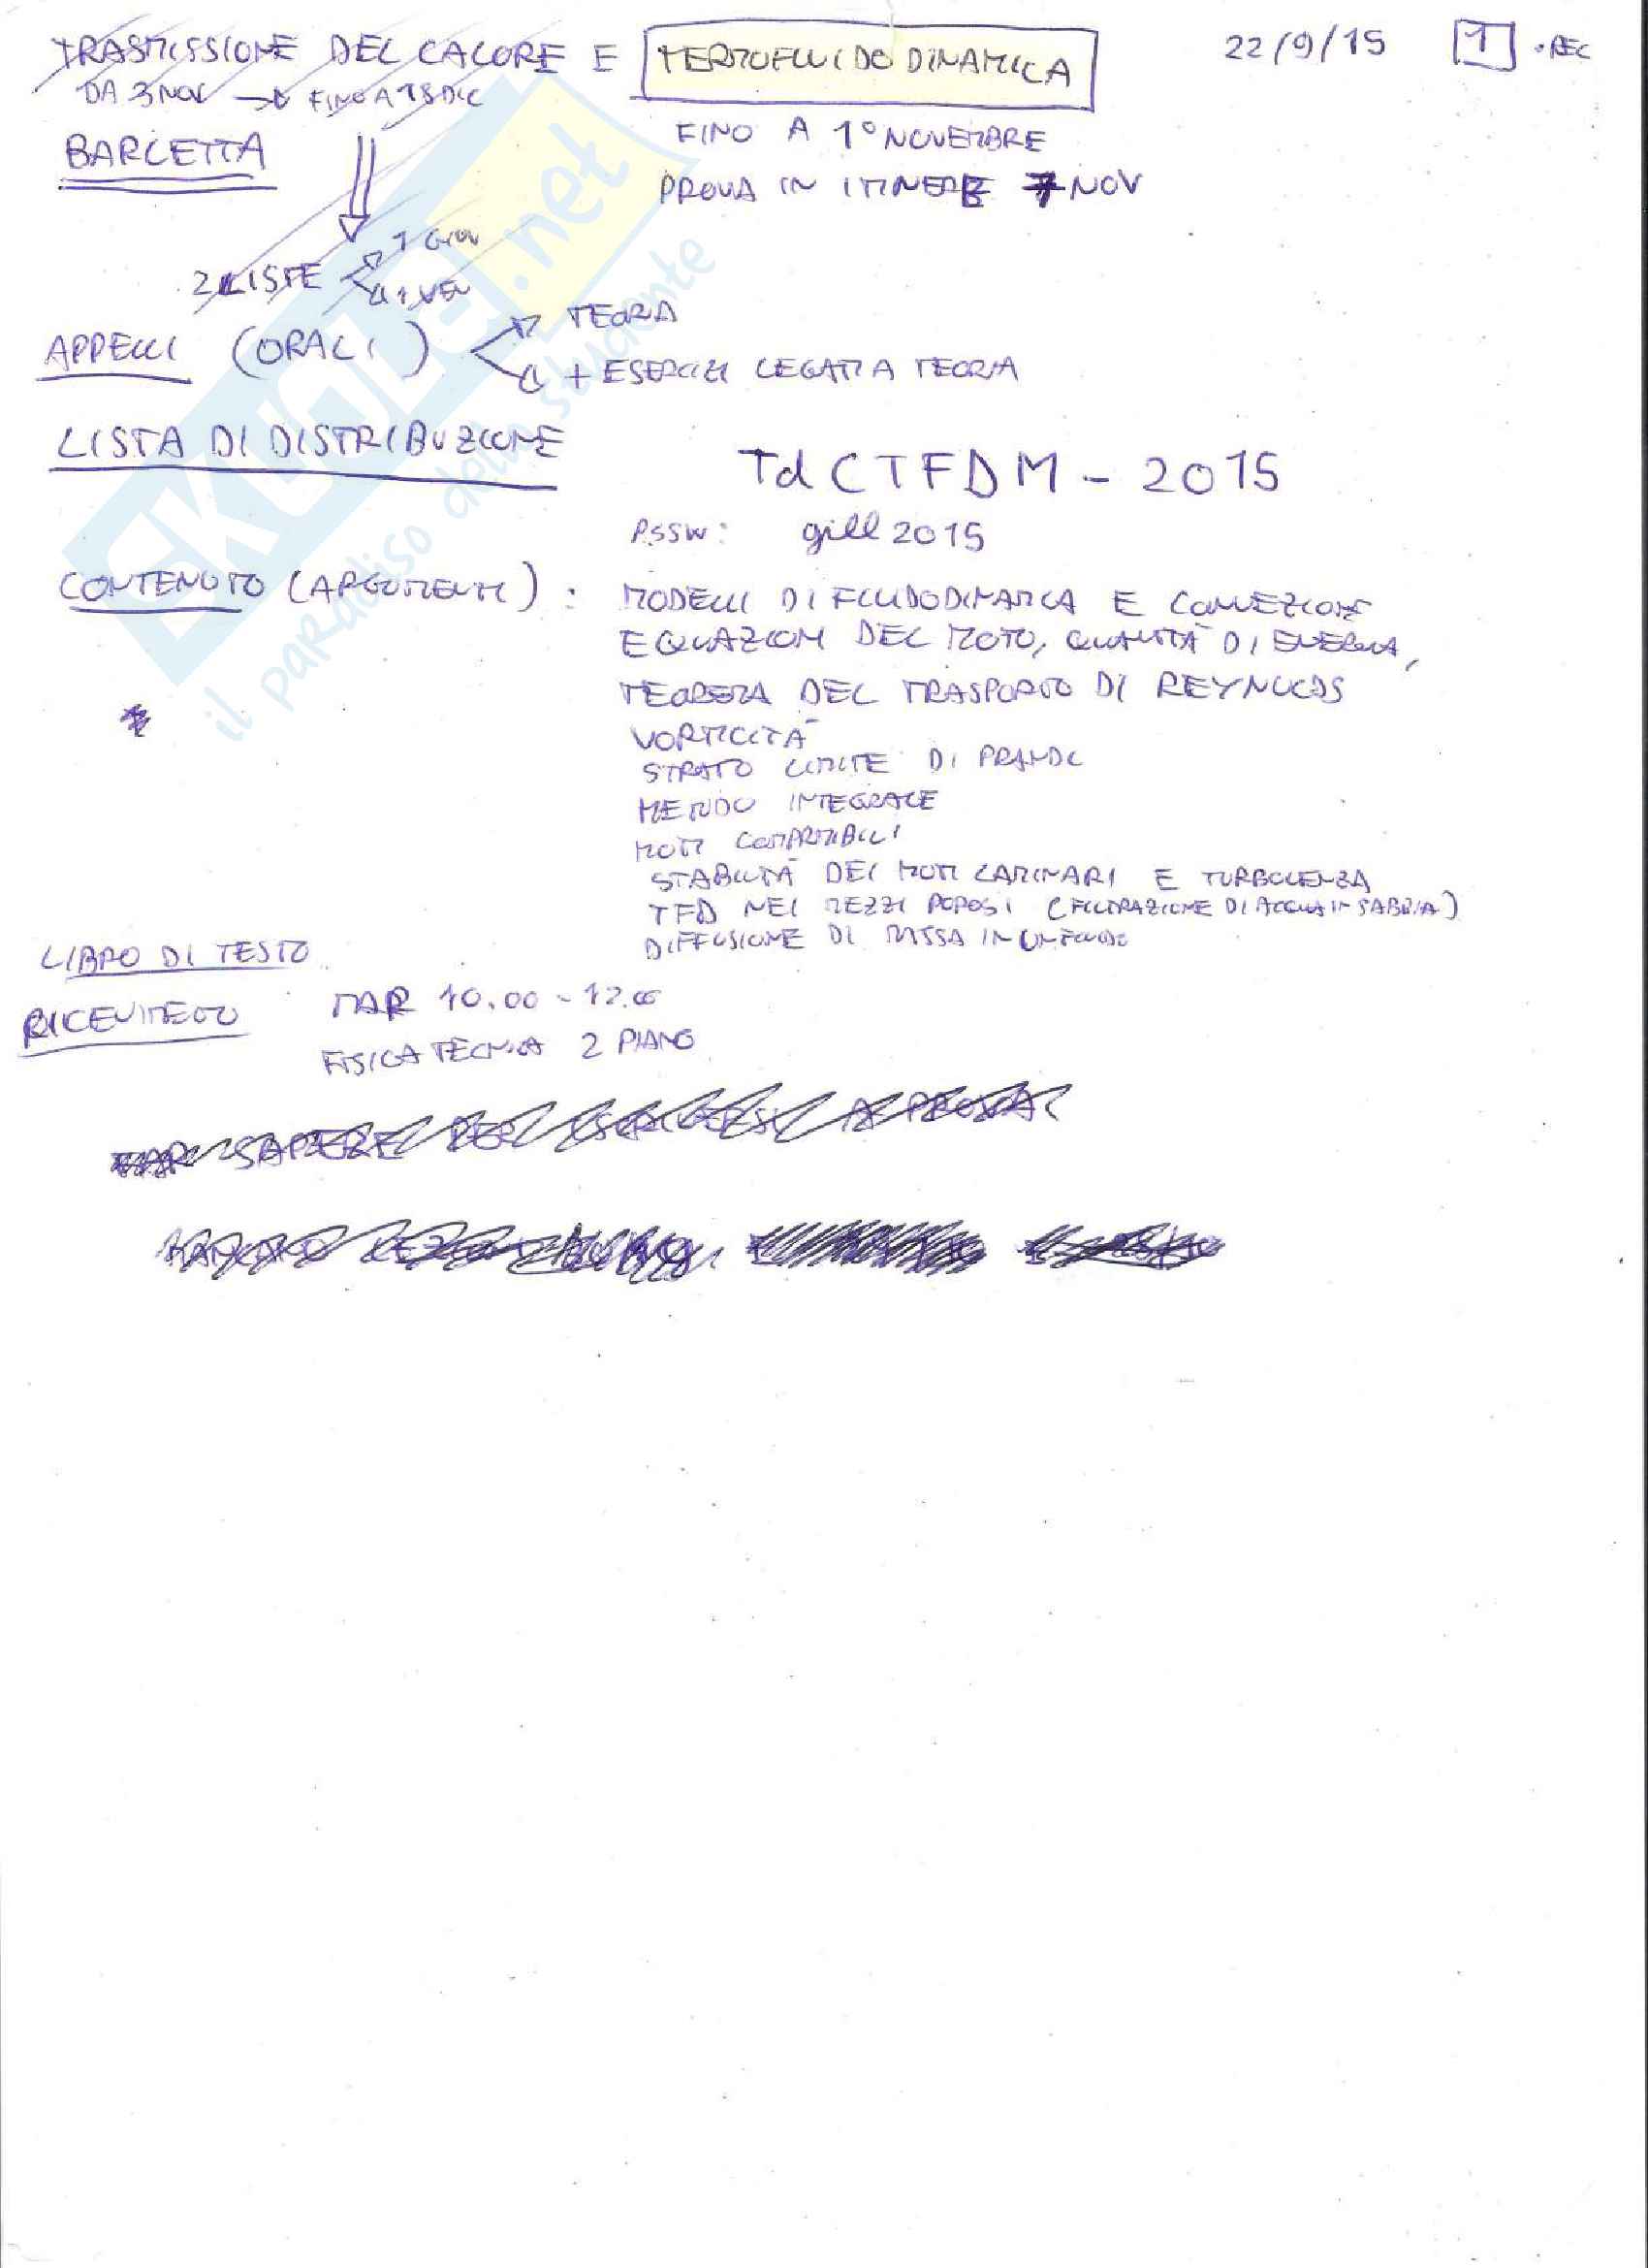 TRASMISSIONE DEL CALORE E TERMOFLUIDODINAMICA 22/9/15 1 .REC
DA 3 NOV → FINO A 18 DIC
FINO A 1° NOVEMBRE
BARLETTA
PROVA IN ITINERE 7 NOV
2 LISTE 1 GIOV
1 VEN
APPELLI (ORALI) TEORIA
+ ESERCIZI LEGATI A TEORIA
LISTA DI DISTRIBUZIONE
TdCTFDM - 2015
PSSW: gill2015
CONTENUTO (ARGOMENTI) : MODELLI DI FLUIDODINAMICA E CONVEZIONE
EQUAZIONI DEL MOTO, QUANTITÀ DI ENERGIA,
TEOREMA DEL TRASPORTO DI REYNOLDS
VORTICITÀ
STRATO LIMITE DI PRANDL
METODO INTEGRALE
MOTI COMPRIMIBILI
STABILITÀ DEI MOTI LAMINARI E TURBOLENZA
TFD NEI MEZZI POROSI (FILTRAZIONE DI ACQUA IN SABBIA)
DIFFUSIONE DI MASSA IN UN FLUIDO
LIBRO DI TESTO
RICEVIMENTO MAR 10.00 - 12.00
FISICA TECNICA 2 PIANO
SAPERE PER ISCRIVERSI A PROVA
SKUOLA.net
il paradiso dello studente